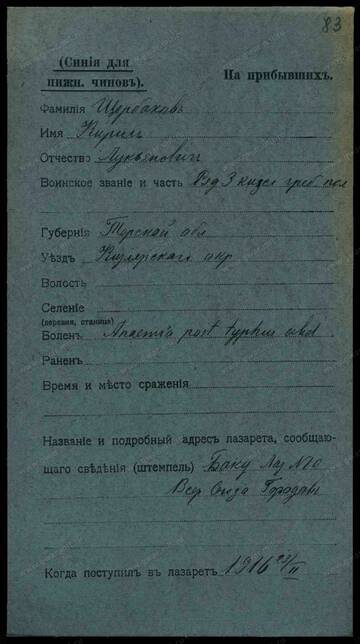 83
(Синія для
нижн. чиновъ).
На прибывшихъ.
Фамилія Щербаковъ
Имя Кирилъ
Отчество Лукьяновичъ
Воинское званіе и часть Ряд 3
Губернія Терской обл
Уѣздъ Кизлярскаго окр
Волость
Селеніе
(деревня, станица)
Боленъ Anaemia post typhum abd
Раненъ
Время и мѣсто сраженія
Названіе и подробный адресъ лазарета, сообщаю-
щаго свѣдѣнія (штемпель) Баку Лаз
Всер Союза Городовъ
Когда поступилъ въ лазаретъ 1916 II